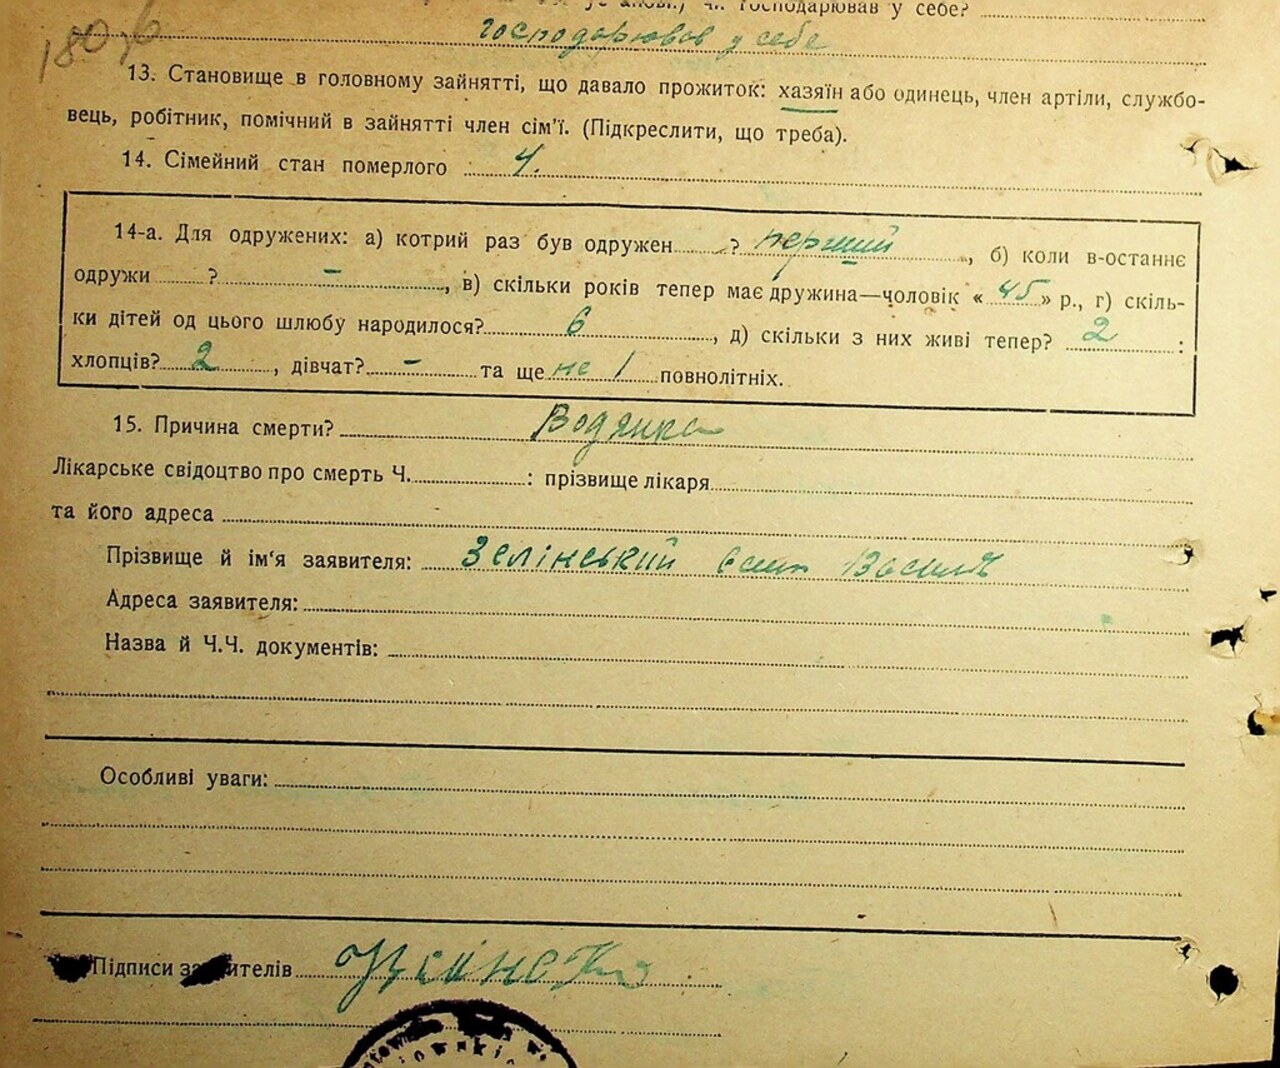 чи господарював у себе?
господарював у себе
13. Становище в головному зайнятті, що давало прожиток: хазяїн або одинець, член артіли, службо-
вець, робітник, помічний в зайнятті член сім'ї. (Підкреслити, що треба).
14. Сімейний стан померлого 4.
14-а. Для одружених: а) котрий раз був одружен ? перший, б) коли в-останнє
одружи ? -, в) скільки років тепер має дружина—чоловік « 45 » р., г) скіль-
ки дітей од цього шлюбу народилося? 6, д) скільки з них живі тепер? 2 :
хлопців? 2, дівчат? - та ще не 1 повнолітніх.
15. Причина смерти? Водянка
Лікарське свідоцтво про смерть Ч. : прізвище лікаря
та його адреса
Прізвище й ім'я заявителя: Зелінський
Адреса заявителя:
Назва й Ч.Ч. документів:
Особливі уваги:
Підписи заявителів